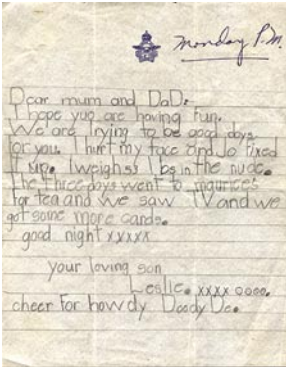 Monday P.M.
Dear mum and DaD.
I hope you are having fun.
We are Trying to be good boys
for you. I hurt my face and Jo fixed
it up. I weigh 51 lbs in the nude.
The three boys went to
for tea and we saw TV and we
got some more cards.
good night xxxxx
your loving son
Leslie. xxxx oooo.
cheer for howdy Doody Do.